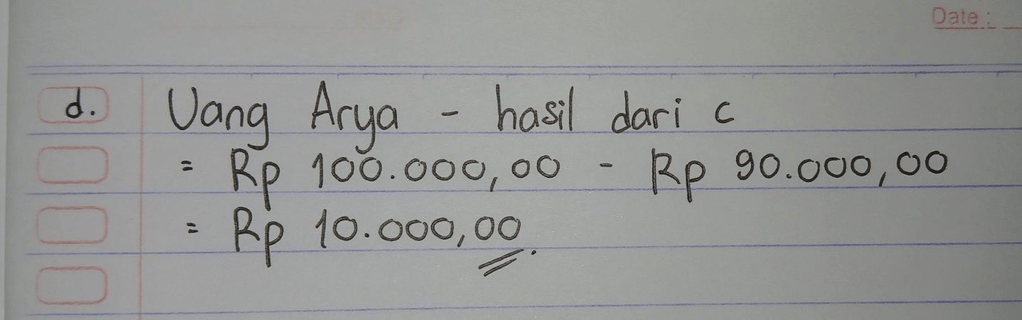 Date :
d. Uang Arya - hasil dari c
= Rp 100.000,00 - Rp 90.000,00
= Rp 10.000,00